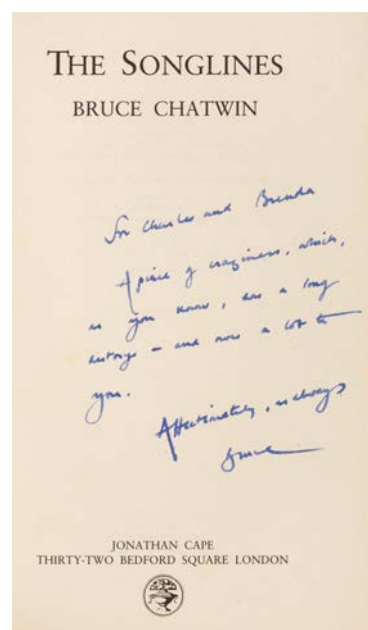 THE SONGLINES
BRUCE CHATWIN
For Charles and Brenda
A piece of craziness, which,
as you know, has a long
history – and owes a lot to
you.
Affectionately, as always
Bruce
JONATHAN CAPE
THIRTY-TWO BEDFORD SQUARE LONDON